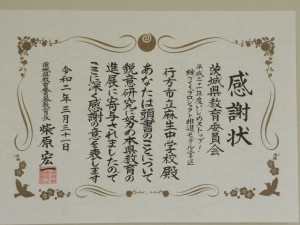 感謝状
茨城県教育委員会
平成三十一年度いじめストップ！
行方市立麻生中学校殿
あなたは頭書のことについて
鋭意研究に努め本県教育の
進展に寄与されましたので
ここに深く感謝の意を表します
令和二年三月三十一日
茨城県教育委員会教育長 柴原宏一